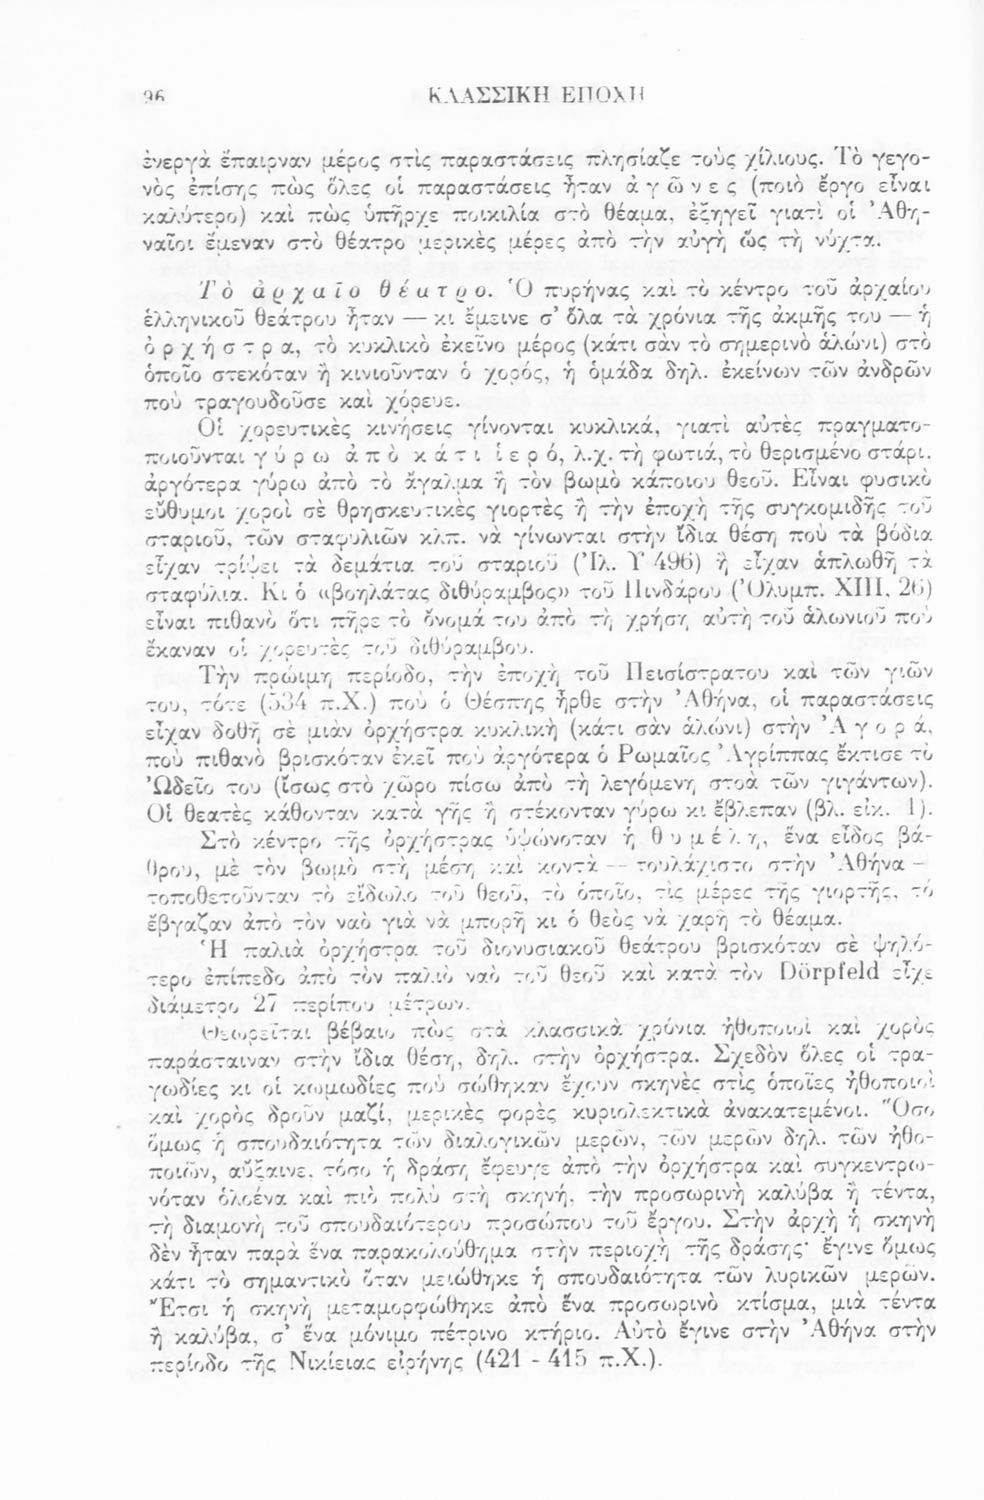 96 ΚΛΑΣΣΙΚΗ ΕΠΟΧΗ
ἐνεργὰ ἔπαιρναν μέρος στὶς παραστάσεις πλησίαζε τοὺς χίλιους. Τὸ γεγο-
νὸς ἐπίσης πὼς ὅλες οἱ παραστάσεις ἦταν ἀγῶνες (ποιὸ ἔργο εἶναι
καλύτερο) καὶ πὼς ὑπῆρχε ποικιλία στὸ θέαμα, ἐξηγεῖ γιατὶ οἱ Ἀθη-
ναῖοι ἔμεναν στὸ θέατρο μερικὲς μέρες ἀπὸ τὴν αὐγὴ ὥς τὴ νύχτα.
Τὸ ἀρχαῖο θέατρο. Ὁ πυρήνας καὶ τὸ κέντρο τοῦ ἀρχαίου
ἑλληνικοῦ θεάτρου ἦταν — κι ἔμεινε σ’ ὅλα τὰ χρόνια τῆς ἀκμῆς του — ἡ
ὀρχήστρα, τὸ κυκλικὸ ἐκεῖνο μέρος (κάτι σὰν τὸ σημερινὸ ἁλώνι) στὸ
ὁποῖο στεκόταν ἢ κινιοῦνταν ὁ χορός, ἡ ὁμάδα δηλ. ἐκείνων τῶν ἀνδρῶν
ποὺ τραγουδοῦσε καὶ χόρευε.
Οἱ χορευτικὲς κινήσεις γίνονται κυκλικά, γιατὶ αὐτὲς πραγματο-
ποιοῦνται γύρω ἀπὸ κάτι ἱερό, λ.χ. τὴ φωτιά, τὸ θερισμένο στάρι,
ἀργότερα γύρω ἀπὸ τὸ ἄγαλμα ἢ τὸν βωμὸ κάποιου θεοῦ. Εἶναι φυσικὸ
εὔθυμοι χοροὶ σὲ θρησκευτικὲς γιορτὲς ἢ τὴν ἐποχὴ τῆς συγκομιδῆς τοῦ
σταριοῦ, τῶν σταφυλιῶν κλπ. νὰ γίνωνται στὴν ἴδια θέση ποὺ τὰ βόδια
εἶχαν τρίψει τὰ δεμάτια τοῦ σταριοῦ (Ἰλ. Υ 496) ἢ εἶχαν ἁπλωθῆ τὰ
σταφύλια. Κι ὁ «βοηλάτας διθύραμβος» τοῦ Πινδάρου (Ὀλυμπ. XIII, 26)
εἶναι πιθανὸ ὅτι πῆρε τὸ ὄνομά του ἀπὸ τὴ χρήση αὐτὴ τοῦ ἁλωνιοῦ ποὺ
ἔκαναν οἱ χορευτὲς τοῦ διθύραμβου.
Τὴν πρώιμη περίοδο, τὴν ἐποχὴ τοῦ Πεισίστρατου καὶ τῶν γιῶν
του, τότε (534 π.Χ.) ποὺ ὁ Θέσπης ἦρθε στὴν Ἀθήνα, οἱ παραστάσεις
εἶχαν δοθῆ σὲ μιὰν ὀρχήστρα κυκλικὴ (κάτι σὰν ἁλώνι) στὴν Ἀγορά,
ποὺ πιθανὸ βρισκόταν ἐκεῖ ποὺ ἀργότερα ὁ Ρωμαῖος Ἀγρίππας ἔκτισε τὸ
Ὠδεῖο του (ἴσως στὸ χῶρο πίσω ἀπὸ τὴ λεγόμενη στοὰ τῶν γιγάντων).
Οἱ θεατὲς κάθονταν κατὰ γῆς ἢ στέκονταν γύρω κι ἔβλεπαν (βλ. εἰκ. 1).
Στὸ κέντρο τῆς ὀρχήστρας ὑψώνοταν ἡ θυμέλη, ἕνα εἶδος βά-
θρου, μὲ τὸν βωμὸ στὴ μέση καὶ κοντὰ — τουλάχιστο στὴν Ἀθήνα —
τοποθετοῦνταν τὸ εἴδωλο τοῦ θεοῦ, τὸ ὁποῖο, τὶς μέρες τῆς γιορτῆς, τὸ
ἔβγαζαν ἀπὸ τὸν ναὸ γιὰ νὰ μπορῆ κι ὁ θεὸς νὰ χαρῆ τὸ θέαμα.
Ἡ παλιὰ ὀρχήστρα τοῦ διονυσιακοῦ θεάτρου βρισκόταν σὲ ψηλό-
τερο ἐπίπεδο ἀπὸ τὸν παλιὸ ναὸ τοῦ θεοῦ καὶ κατὰ τὸν Dörpfeld εἶχε
διάμετρο 27 περίπου μέτρων.
Θεωρεῖται βέβαιο πὼς στὰ κλασσικὰ χρόνια ἠθοποιοὶ καὶ χορὸς
παράσταιναν στὴν ἴδια θέση, δηλ. στὴν ὀρχήστρα. Σχεδὸν ὅλες οἱ τρα-
γωδίες κι οἱ κωμωδίες ποὺ σώθηκαν ἔχουν σκηνὲς στὶς ὁποῖες ἠθοποιοὶ
καὶ χορὸς δροῦν μαζί, μερικὲς φορὲς κυριολεκτικὰ ἀνακατεμένοι. Ὅσο
ὅμως ἡ σπουδαιότητα τῶν διαλογικῶν μερῶν, τῶν μερῶν δηλ. τῶν ἠθο-
ποιῶν, αὔξαινε, τόσο ἡ δράση ἔφευγε ἀπὸ τὴν ὀρχήστρα καὶ συγκεντρω-
νόταν ὁλοένα καὶ πιὸ πολὺ στὴ σκηνή, τὴν προσωρινὴ καλύβα ἢ τέντα,
τὴ διαμονὴ τοῦ σπουδαιότερου προσώπου τοῦ ἔργου. Στὴν ἀρχὴ ἡ σκηνὴ
δὲν ἦταν παρὰ ἕνα παρακολούθημα στὴν περιοχὴ τῆς δράσης· ἔγινε ὅμως
κάτι τὸ σημαντικὸ ὅταν μειώθηκε ἡ σπουδαιότητα τῶν λυρικῶν μερῶν.
Ἔτσι ἡ σκηνὴ μεταμορφώθηκε ἀπὸ ἕνα προσωρινὸ κτίσμα, μιὰ τέντα
ἢ καλύβα, σ’ ἕνα μόνιμο πέτρινο κτήριο. Αὐτὸ ἔγινε στὴν Ἀθήνα στὴν
περίοδο τῆς Νικίειας εἰρήνης (421 - 415 π.Χ.).